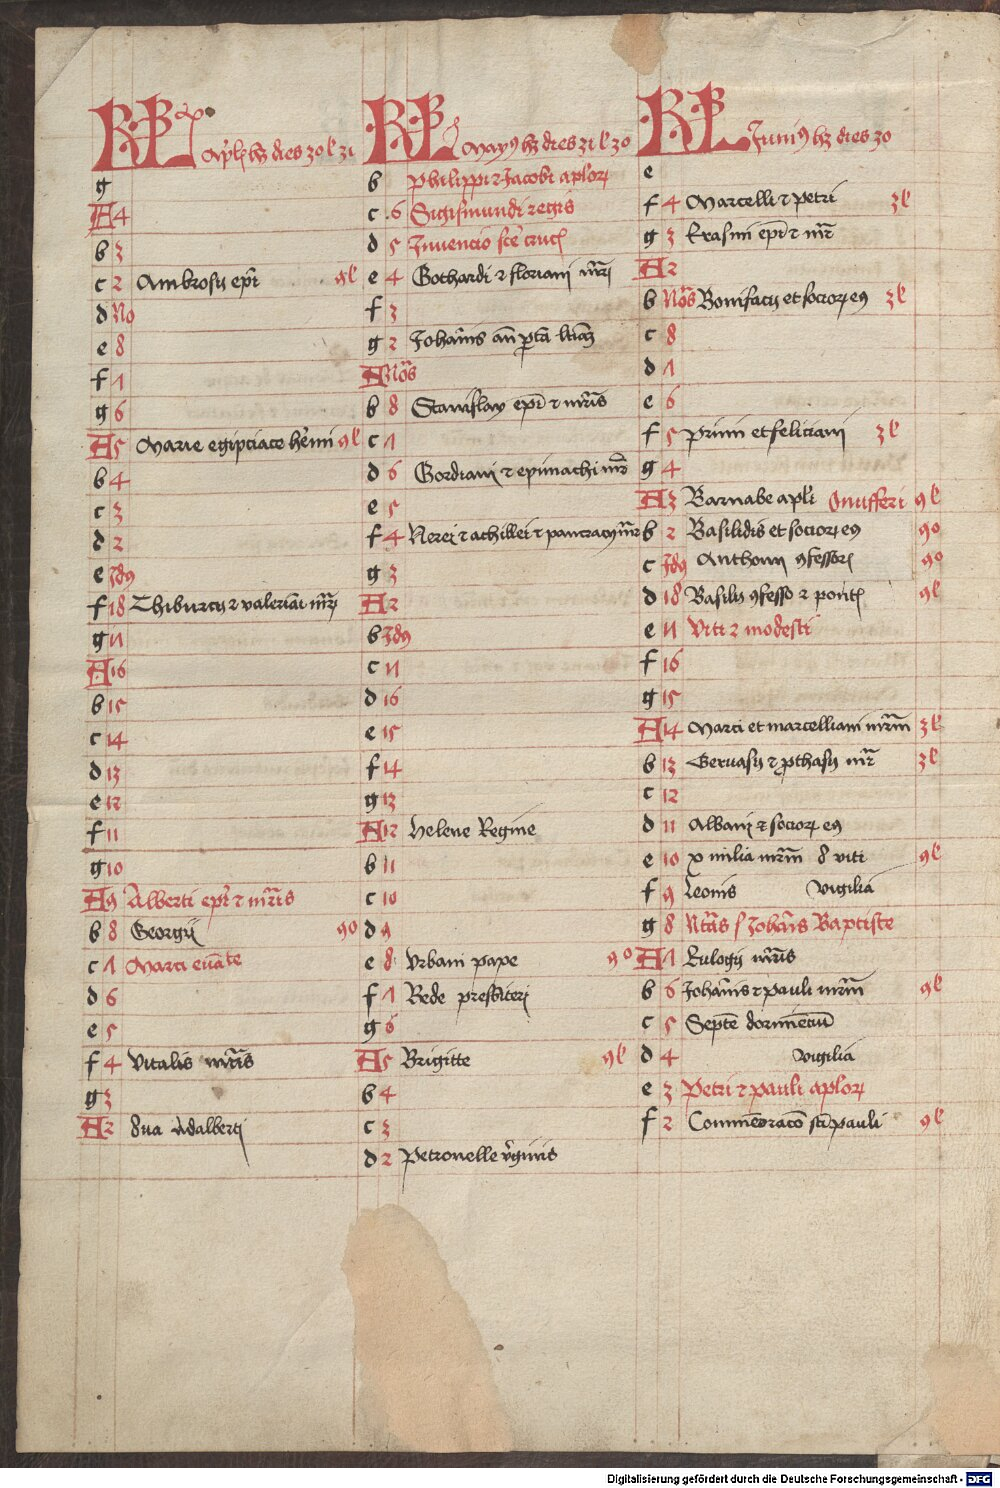 KL Apl'z hz dies 30 l' 31
g
A 4
b 3
c 2 Ambrosij epi 9l
d No
e 8
f 1
g 6
A 5 Marie egiptiace 9l
b 4
c 3
d 2
e Jdg
f 18 Thiburcij z valeriani mr
g 11
A 16
b 15
c 14
d 13
e 12
f 11
g 10
A 9 Alberti epi z mris
b 8 Georgij 90
c 1 Marci
d 6
e 5
f 4 Vitalis mris
g 3
A 2 Adalberti
KL May9 hz dies 31 l' 30
b Philippi z Jacobi aplor
c 6 Sigismundi regis
d 5 Jnuencio sce cruc
e 4 Gothardi z floriani mr
f 3
g 2 Johanis an porta latina
A Nos
b 8 Stanislay epi z mris
c 1
d 6 Gordiani z epimachi mr
e 5
f 4 Nerei z achillei z pancracij mr
g 3
A 2
b Jdg
c 11
d 16
e 15
f 14
g 13
A 12 Helene Regine
b 11
c 10
d 9
e 8 Vrbani pape 90
f 1 Bede presbiteri
g 6
A 5 Brigitte 9l
b 4
c 3
d 2 Petronelle virginis
KL Juni9 hz dies 30
e
f 4 Marcelli z petri 3l
g 3 Erasmi epi z mr
A 2
b Nos Bonifacij et socior eg 3l
c 8
d 1
e 6
f 5 Primi et feliciani 3l
g 4
A 3 Barnabe apli Onufferi 9l
b 2 Basilidis et socior eg 90
c Jdg Anthonij 9fessor 90
d 18 Basilij 9fesso z pontif 9l
e 11 Viti z modesti
f 16
g 15
A 14 Marci et marcelliani mrm 3l
b 13 Geruasij z prothasij mr 3l
c 12
d 11 Albani z socior eg
e 10 x milia mrm viti 9l
f 9 Leonis Vigilia
g 8 Ntas s Johanis Baptiste
A 1 Eulogij mris
b 6 Johanis z pauli mrm 9l
c 5 Septe dormiencium
d 4 Vigilia
e 3 Petri z pauli aplor
f 2 Commemoraco sti pauli 9l
Digitalisierung gefördert durch die Deutsche Forschungsgemeinschaft - DFG